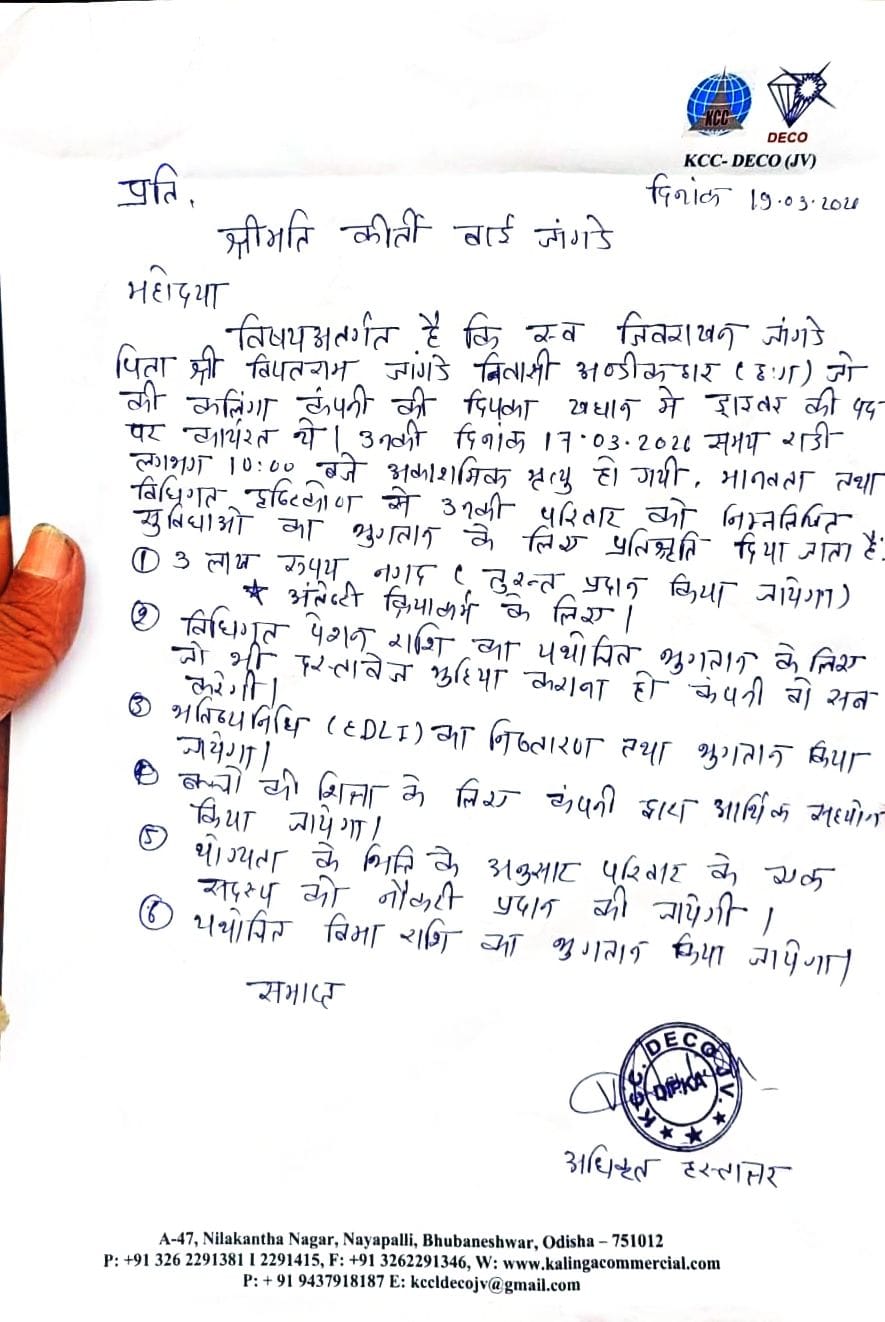 KCC
DECO
KCC- DECO (JV)
प्रति,
दिनांक 19.03.2026
श्रीमति कीर्ती बाई जांगडे
महोदया
विषयअतर्गत है कि स्व जिवराखन जांगडे
पिता श्री विपतराम जांगडे निवासी अण्डीकछार (छ:ग) जो
की कलिंगा कंपनी की दिपका खधान मे डाइवर की पद
पर कार्यरत थे। उनकी दिनांक 17.03.2026 समय रात्री
लगभग 10:00 बजे अकाशमिक मृत्यु हो गयी, मानवता तथा
विधिगत दृष्टिकोण से उनकी परिवार को निम्नलिखित
सुविधाओ का भुगतान के लिए प्रतिश्रृति दिया जाता है:
① 3 लाख रुपय नगद ( तुरन्त प्रदान किया जायेगा)
★ अंतेष्टी क्रियाकर्म के लिए।
② विधिगत पेशन राशि का यथोचित भुगतान के लिए
जो भी दस्तावेज मुहिया कराना हो कंपनी वो सब
करेगी।
③ भविष्यनिधि (EDLI) का निष्तारण तथा भुगतान किया
जायेगा।
④ बच्चो की शिक्षा के लिए कंपनी द्वारा आर्थिक सहयोग
किया जायेगा।
⑤ योग्यता के भिति के अनुसार परिवार के एक
सदस्य को नौकरी प्रदान की जायेगी।
⑥ यथोचित बिमा राशि का भुगतान किया जायेगा।
समाप्त
K.C.C. DECO J.V.
DIPKA
अधिकृत हस्ताक्षर
A-47, Nilakantha Nagar, Nayapalli, Bhubaneshwar, Odisha – 751012
P: +91 326 2291381 I 2291415, F: +91 3262291346, W: www.kalingacommercial.com
P: + 91 9437918187 E: kccldecojv@gmail.com